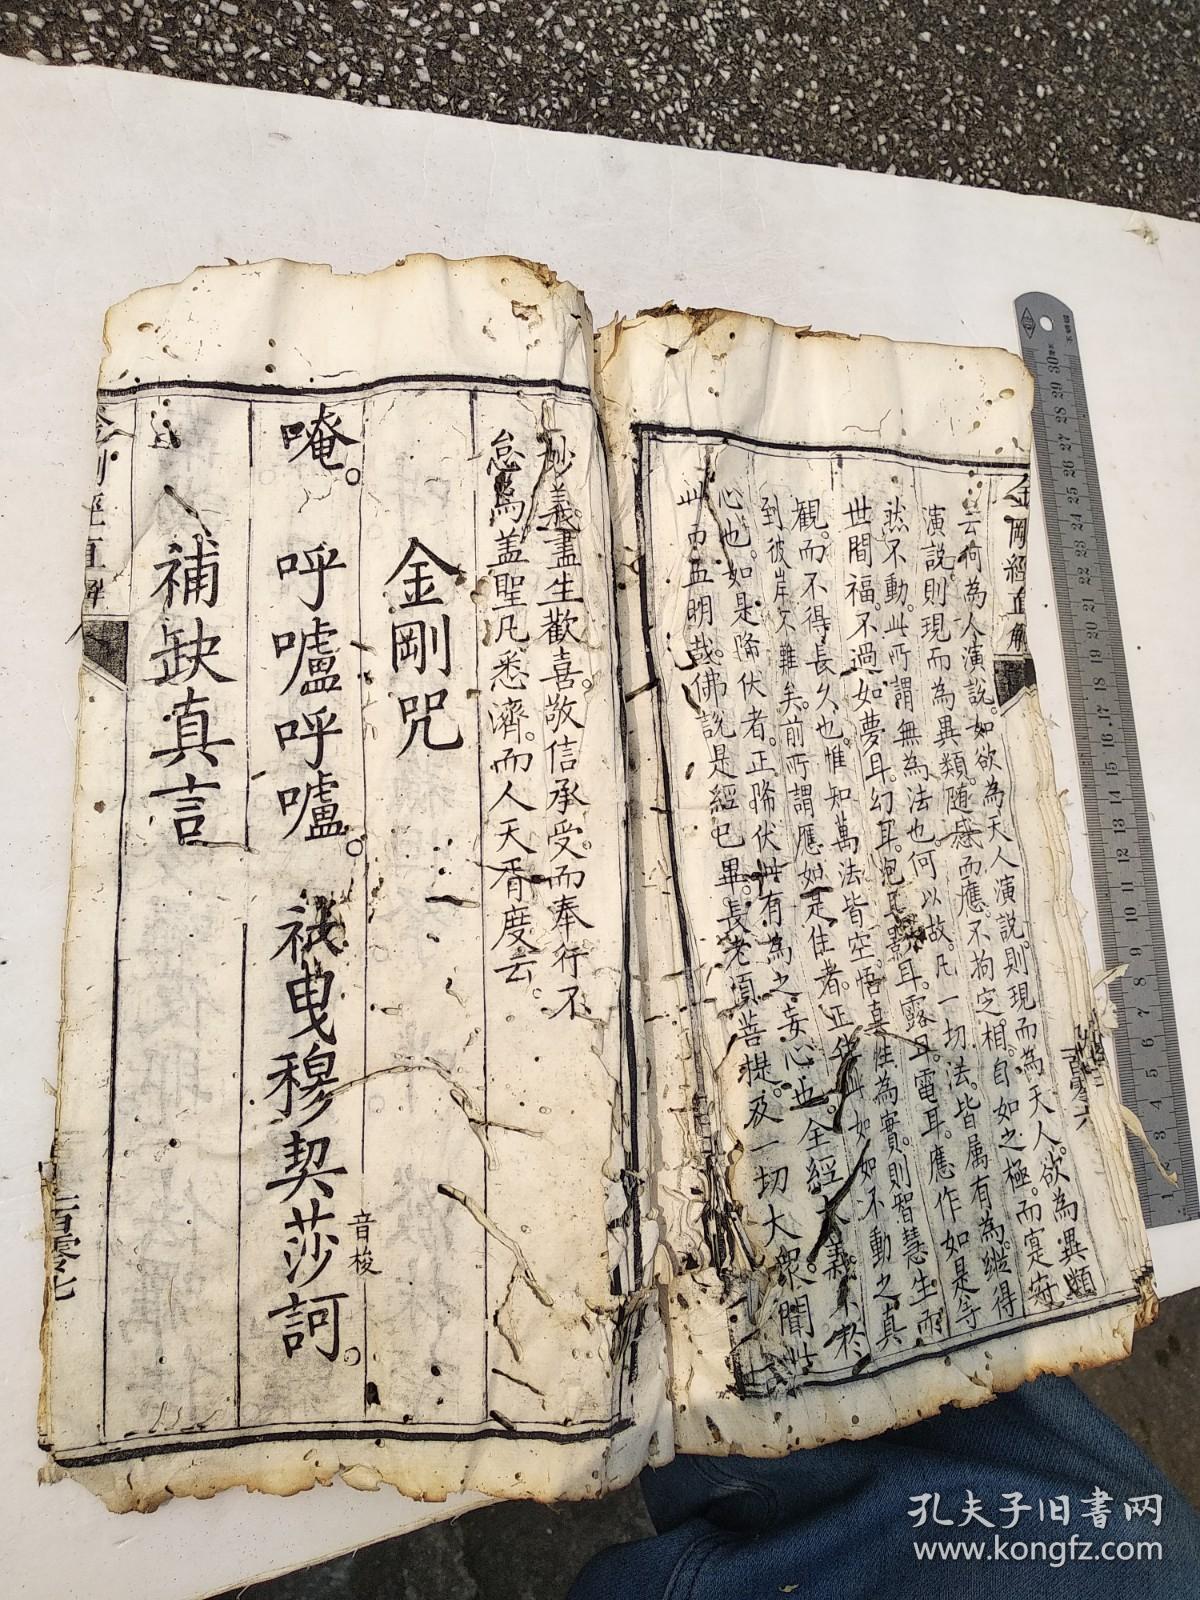 金剛經直解
一百零六
云何為人演說。如欲為天人演說則現而為天人。欲為異類
演說則現而為異類。隨感而應。不拘定相。自如之極。而寔寂
然不動。此所謂無為法也。何以故。凡一切法。皆属有為。縱得
世間福。不過如夢耳。幻耳。泡耳。影耳。露耳。電耳。應作如是等
觀。而不得長久也。惟知萬法皆空。悟真性為實。則智慧生而
到彼岸不難矣。前所謂應如是住者。正住此如如不動之真
心也。如是降伏者。正降伏此有為之妄心也。全經大義不於
此而五明哉。佛說是經已畢。長老須菩提。及一切大衆聞此
妙義。盡生歡喜。敬信承受。而奉行不
怠焉。盖聖凡悉濟。而人天胥度云。
金剛咒
唵。呼嚧呼嚧。祇曳穆契莎訶。
音梭
補缺真言
金剛經直解
一百零七
孔夫子旧書网
www.kongfz.com